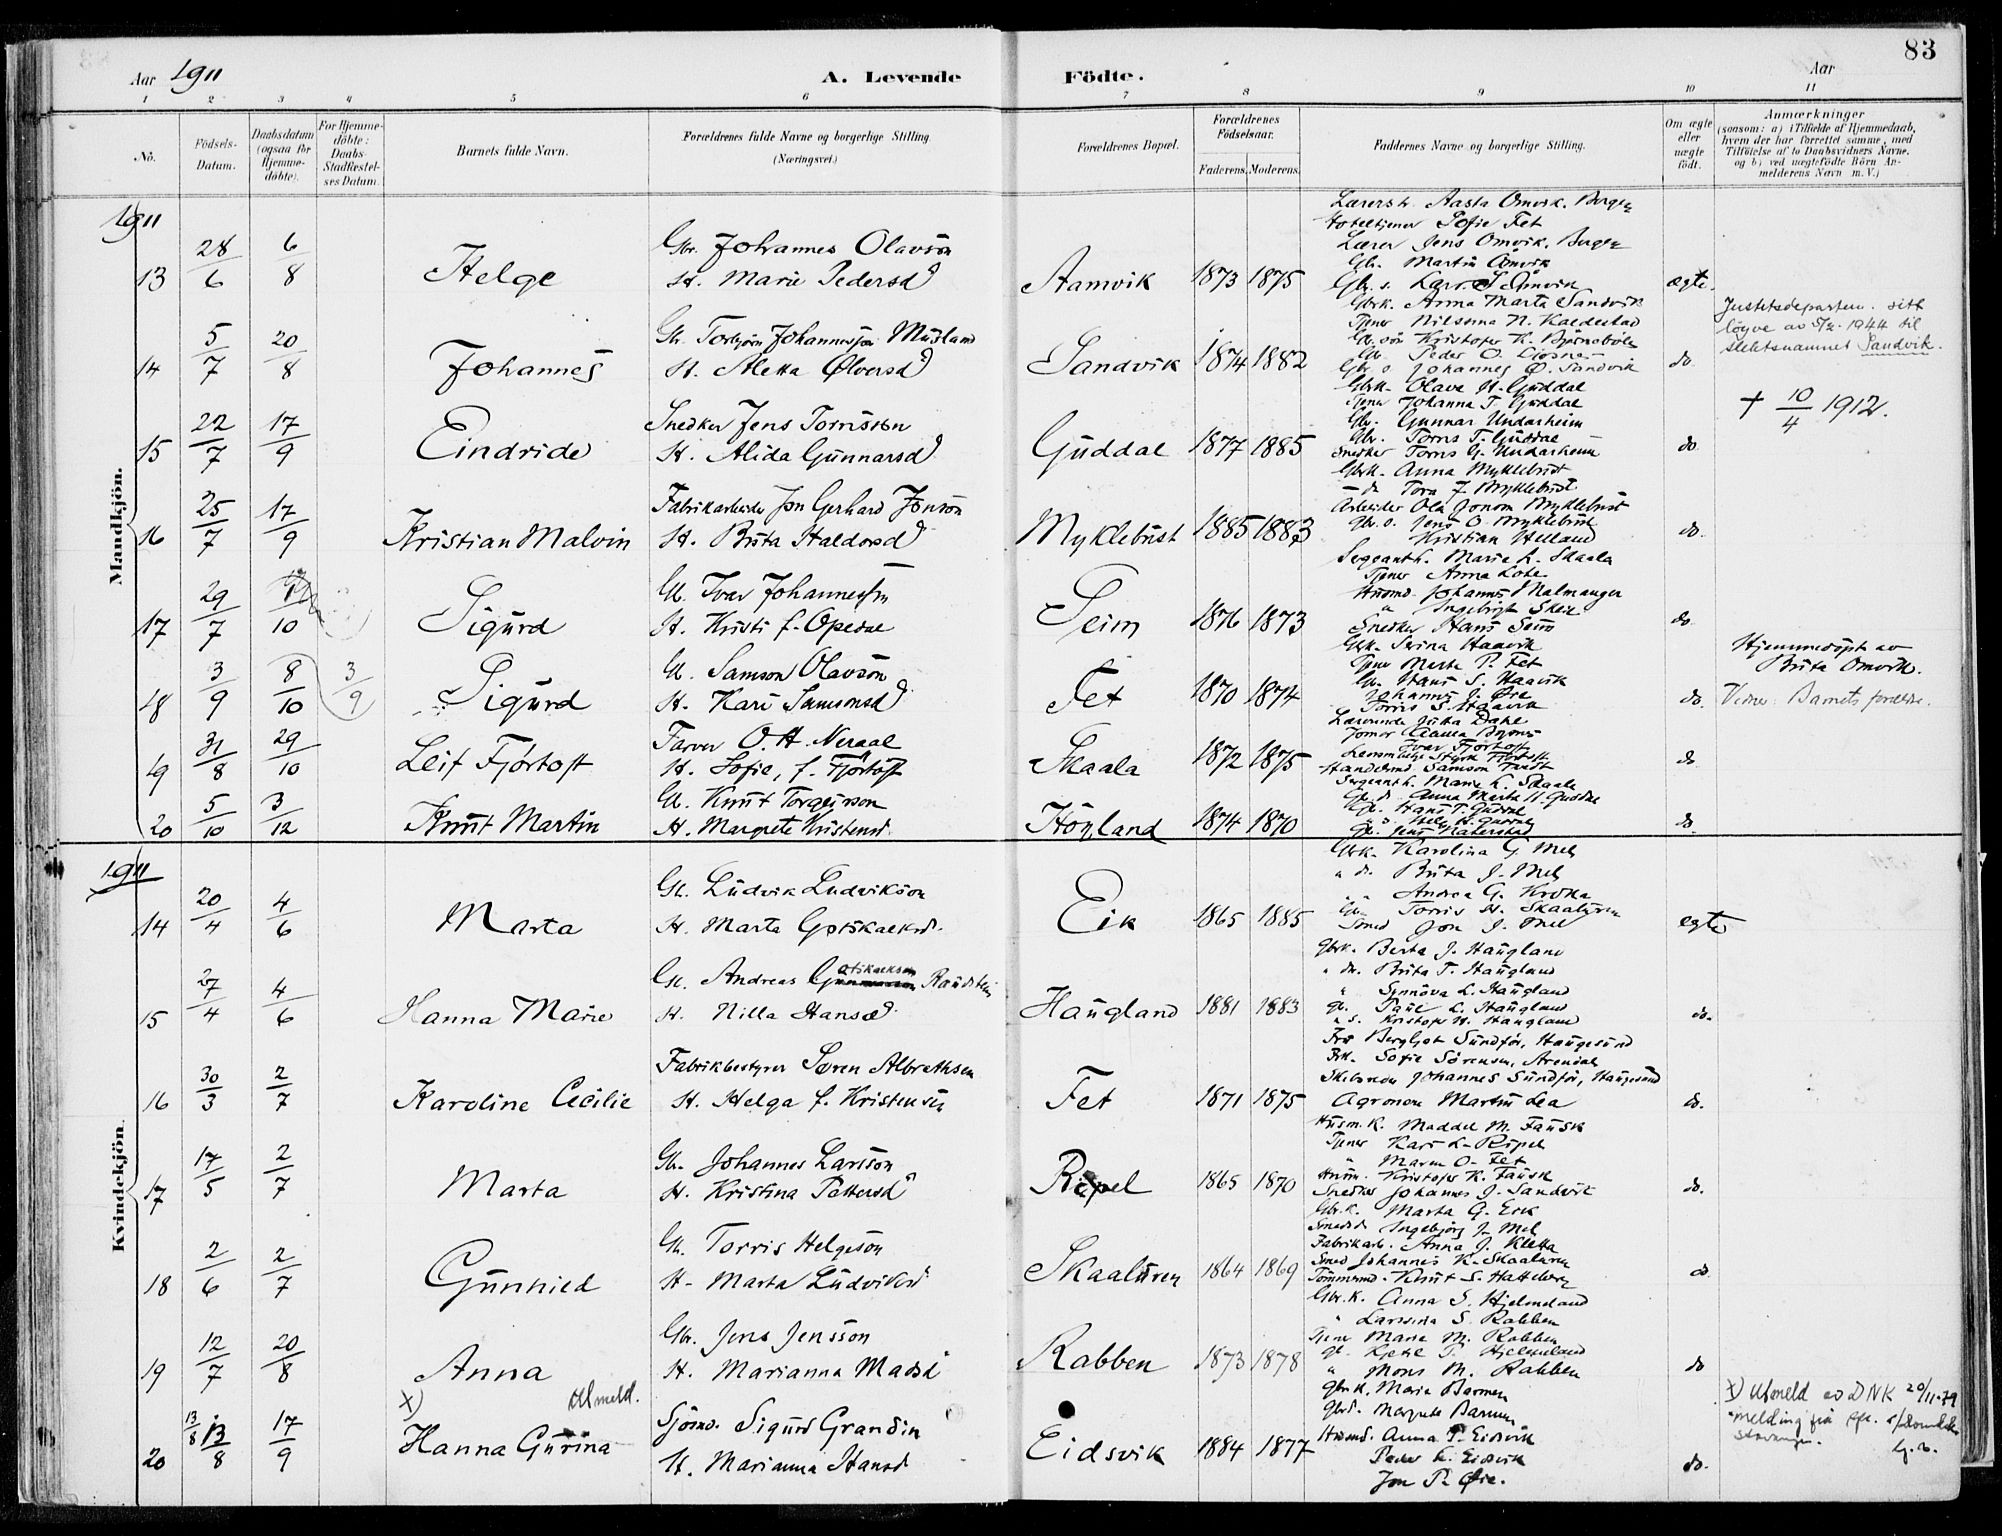 83
Aar 1911 A. Levende Födte. Aar
1 2 3 4 5 6 7 8 9 10 11
No.
Födsels-Datum.
Daabsdatum (ogsaa for Hjemme-döbte).
For Hjemme-döbte: Daabs-Stadfæstel-ses Datum.
Barnets fulde Navn.
Forældrenes fulde Navne og borgerlige Stilling (Næringsvei.)
Forældrenes Bopæl.
Forældrenes Födselsaar.
Faderens. Moderens.
Faddernes Navne og borgerlige Stilling.
Om ægte eller uægte födt.
Anmærkninger
(saasom: a) i Tilfælde af Hjemmedaab,
hvem der har forrettet samme, med
Tilföielse af to Daabsvidners Navne.
og b) ved uægtefödte Börn An-
melderens Navn m. V.)
Mandkjön.
1911
13 28/6 6/8 Helge
Gbr. Johannes Olavson
H. Marie Pedersd
Aamvik 1873 1875
Aasta Omvik. Bergen
Sofie Fet
Lærer Jens Omvik. Bergen
Gbr. Martin Omvik
ægte.
14 5/7 20/8 Johannes
Gbr. Torbjörn Johannesson Musland
H. Aletta Ølversd
Sandvik 1874 1882
Gbrk. Anna Marta Sandvik
Tjener Nilsina N. Kaldestad
Gbr. sön Kristofer K. Björneböle
Gbr. s. Johannes Ø. Sandvik
do.
Justitsdepartem. sitt
löyve av 1944 til
slektsnamnet Sandvik.
15 22/7 17/9 Eindride
Snedker Jens Torrisson
H. Alida Gunnarsd
Guddal 1877 1885
Gbrk. Olava H. Guddal
Tjener Johanna T. Guddal
Gbr. Gunnar Undarheim
Gbr. Torris T. Guddal
Snedker Torris G. Undarheim
do.
† 10/4 1912.
16 25/7 17/9 Kristian Malvin
Fabrikarbeider Jon Gerhard Jonson
H. Brita Haldorsd
Myklebust 1885 1883
Gbrk. Anna Myklebust
Tora J. Myklebust
Arbeider Ola Jonson Myklebust
Gbr. s. Jens O. Myklebust
Kristian Helland
do.
17 29/7 1/10 Sigurd
G. Ivar Johannesson
H. Kristi f. Opedal
Seim 1876 1873
Sergeanth. Marie L. Skaala
Tjener Anna Lote
Husmd. Johannes Malmanger
" Ingebrigt Skeie
Snedker Hans Seim
do.
18 3/9 8/10 3/9 Sigurd
G. Samson Olavson
H. Kari Samsonsd
Fet 1870 1874
Gbrk. Serina Haavik
Tjener Marta P. Fet
Gbr. Hans S. Haavik
Johannes J. Øre
Torris S. Haavik
do.
Hjemmedöpt av
Brita Omvik.
Vidner: Barnets foreldre.
19 31/8 29/10 Leif Fjörtoft
Farver O. H. Neraal
H. Sofie, f. Fjörtoft
Skaala 1872 1875
Lærerinde Jutta Dahl
Ivar Fjörtoft
Handelsmd. Samson Tandt
do.
20 5/10 3/12 Knut Martin
G. Knut Torgeirson
H. Margrete Kristensd.
Höyland 1874 1870
Sergeanth. Marie L. Skaala
Anna Marta H. Guddal
Gbr. Hans T. Guddal
Gbr. Jens Naterstad
do.
Kvindekjön.
1911
14 20/4 4/6 Marta
G. Ludvik Ludvikson
H. Marta Gotskalksd.
Eik 1865 1885
Gbrk. Karolina G. Mel
" d. Brita J. Mel
" Andrea G. Kroka
Gbr. Torris H. Skaaluren
Smed Jon J. Mel
egte
15 27/4 4/6 Hanna Marie
G. Andreas Gotskalkson Raudstein
H. Nilla Hansd.
Haugland 1881 1883
Gbrk. Berta J. Haugland
" d. Brita T. Haugland
" Synnöva L. Haugland
gbr. Paul L. Haugland
" s. Kristofer H. Haugland
do.
16 30/3 2/7 Karoline Cecilie
Fabrikbestyrer Sören Albrethsen
H. Helga f. Kristensen
Fet 1871 1875
Fru Bergljot Sundför, Haugesund
Frk. Sofie Sörensen, Arendal
Skibsreder Johannes Sundför, Haugesund
Agronom Martin Lea
do.
17 17/5 2/7 Marta
Gbr. Johannes Larsson
H. Kristina Pettersd
Ripel 1865 1870
Husm. K. Maddel M. Fausk
Tjener Kari L. Ripel
" Maren O. Fet
Husm. Kristofer K. Fausk
Snedker Johannes J. Sandvik
do.
18 2/6 2/7 Gunhild
Gbr. Torris Helgeson
H. Marta Ludviksd
Skaaluren 1864 1869
Gbr. k. Marta G. Eik
Smedd. Ingebjörg J. Mel
Fabrikarb. Anna J. Kletta
Smed Johannes K. Skaaluren
Tömmermd. Knut S. Hatteberg
do.
19 12/7 20/8 Anna
Gbr. Jens Jensson
H. Marianna Madsd
Rabben 1873 1878
Gbr. K. Anna S. Hjelmeland
" Larsina S. Rabben
Tjener Maria M. Rabben
gbr. Kjetil P. Hjelmeland
" Mons M. Rabben
do
20 13/8 13/8 17/9 x) Hanna Gurina Utmeld.
Sjömd. Sigurd Grandin
H. Marianna Hansd
Eidsvik 1884 1877
gbr.k. Maria Barmen
gbrd. Margreta Barmen
Husmd. Anna P. Eidsvik
Peder L. Eidsvik
Jon P. Øie.
do.
x) Utmeld av DNK 20/11-79
melding frå
Stavanger.